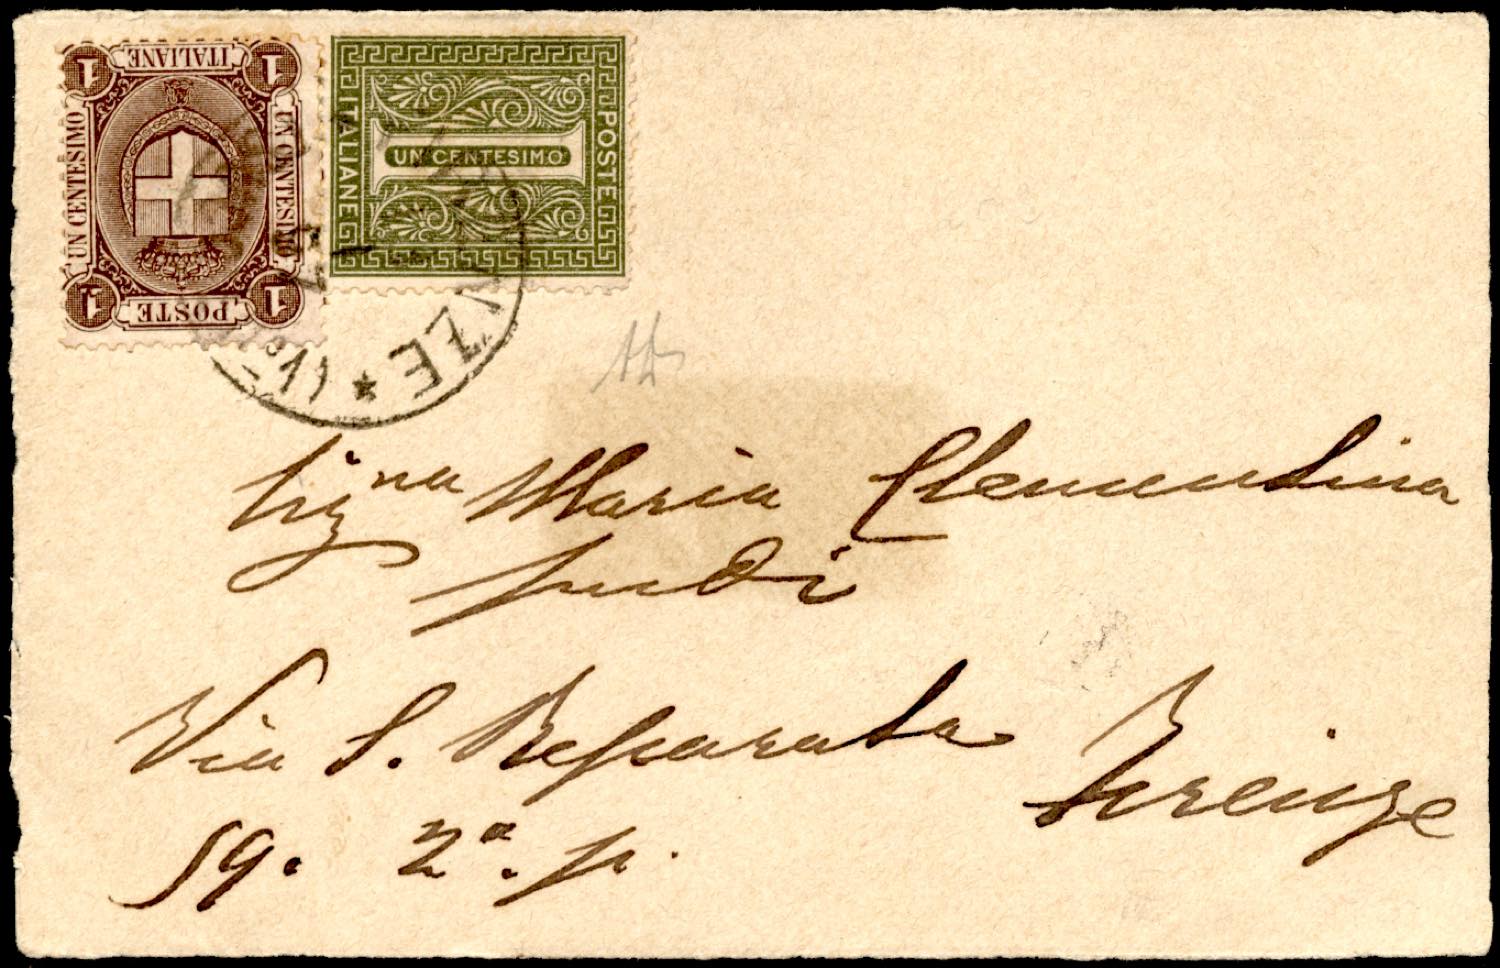 POSTE
ITALIANE
UN CENTESIMO
UN CENTESIMO
1
1
1
1
POSTE
ITALIANE
UN CENTESIMO
FIRENZE *
Signa Maria Clementina
Judi
Via S. Reparata
Firenze
59. 2a. p.